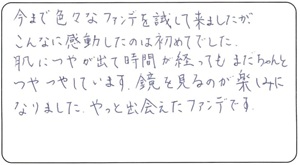 今まで色々なファンデを試して来ましたが
こんなに感動したのは初めてでした。
肌につやが出て時間が経ってもまだちゃんと
つやつやしています。鏡を見るのが楽しみに
なりました。やっと出会えたファンデです。